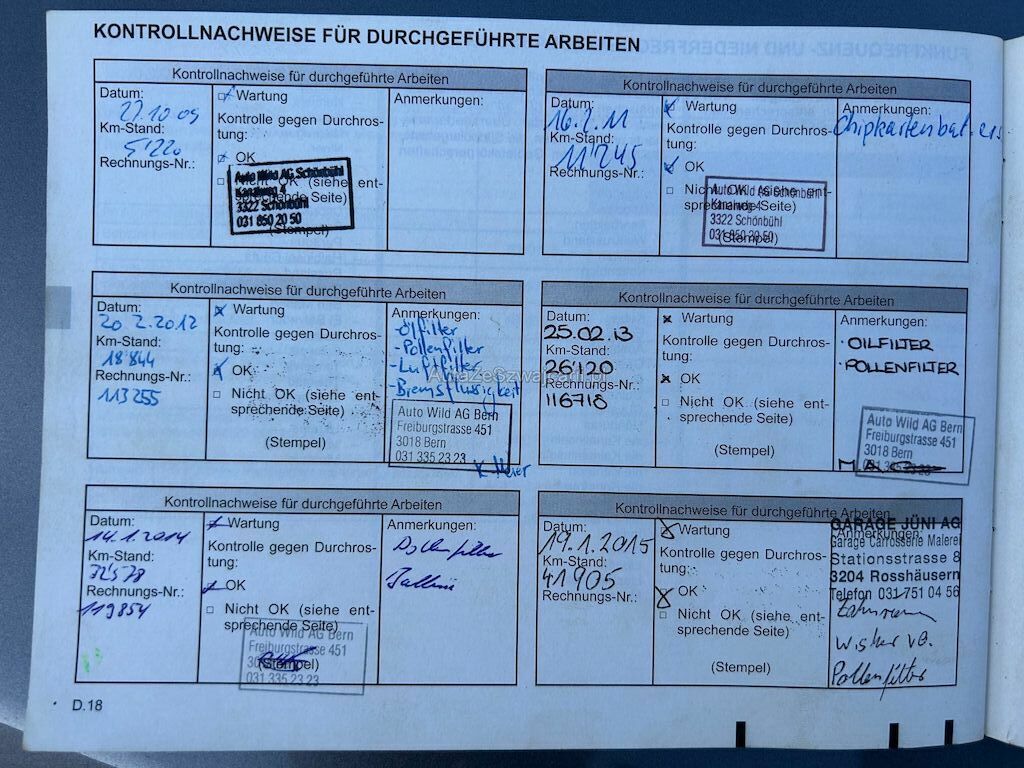 KONTROLLNACHWEISE FÜR DURCHGEFÜHRTE ARBEITEN
Kontrollnachweise für durchgeführte Arbeiten
Datum:
27.10 09
Km-Stand:
5'220
Rechnungs-Nr.:
Wartung
Kontrolle gegen Durchros-
tung:
OK
Nicht OK (siehe ent-
sprechende Seite)
(Stempel)
Auto Wild AG Schönbühl
Kanalweg 4
3322 Schönbühl
031 850 20 50
Anmerkungen:
Kontrollnachweise für durchgeführte Arbeiten
Datum:
16.2.11
Km-Stand:
11'245
Rechnungs-Nr.:
Wartung
Kontrolle gegen Durchros-
tung:
OK
Nicht OK (siehe ent-
sprechende Seite)
(Stempel)
Auto Wild AG Schönbühl
Kanalweg 4
3322 Schönbühl
031 850 20 50
Anmerkungen:
Chipkartenbat.
Kontrollnachweise für durchgeführte Arbeiten
Datum:
20.2.2012
Km-Stand:
18'844
Rechnungs-Nr.:
113255
Wartung
Kontrolle gegen Durchros-
tung:
OK
Nicht OK (siehe ent-
sprechende Seite)
(Stempel)
Anmerkungen:
-Ölfilter
-Pollenfilter
-Luftfilter
-Bremsflüssigkeit
Auto Wild AG Bern
Freiburgstrasse 451
3018 Bern
031 335 23 23
K. Meier
Kontrollnachweise für durchgeführte Arbeiten
Datum:
25.02.13
Km-Stand:
26'120
Rechnungs-Nr.:
116718
Wartung
Kontrolle gegen Durchros-
tung:
OK
Nicht OK (siehe ent-
sprechende Seite)
(Stempel)
Anmerkungen:
·OILFILTER
·POLLENFILTER
Auto Wild AG Bern
Freiburgstrasse 451
3018 Bern
031 335 23 23
Kontrollnachweise für durchgeführte Arbeiten
Datum:
14.1.2014
Km-Stand:
32'578
Rechnungs-Nr.:
119854
Wartung
Kontrolle gegen Durchros-
tung:
OK
Nicht OK (siehe ent-
sprechende Seite)
(Stempel)
Auto Wild AG Bern
Freiburgstrasse 451
031 335 23 23
Anmerkungen:
Kontrollnachweise für durchgeführte Arbeiten
Datum:
19.1.2015
Km-Stand:
41905
Rechnungs-Nr.:
Wartung
Kontrolle gegen Durchros-
tung:
OK
Nicht OK (siehe ent-
sprechende Seite)
(Stempel)
Anmerkungen:
GARAGE JÜNI AG
Garage Carrosserie Malerei
Stationsstrasse 8
3204 Rosshäusern
Telefon 031 751 04 56
Zahnriemen
Pollenfilter
D.18